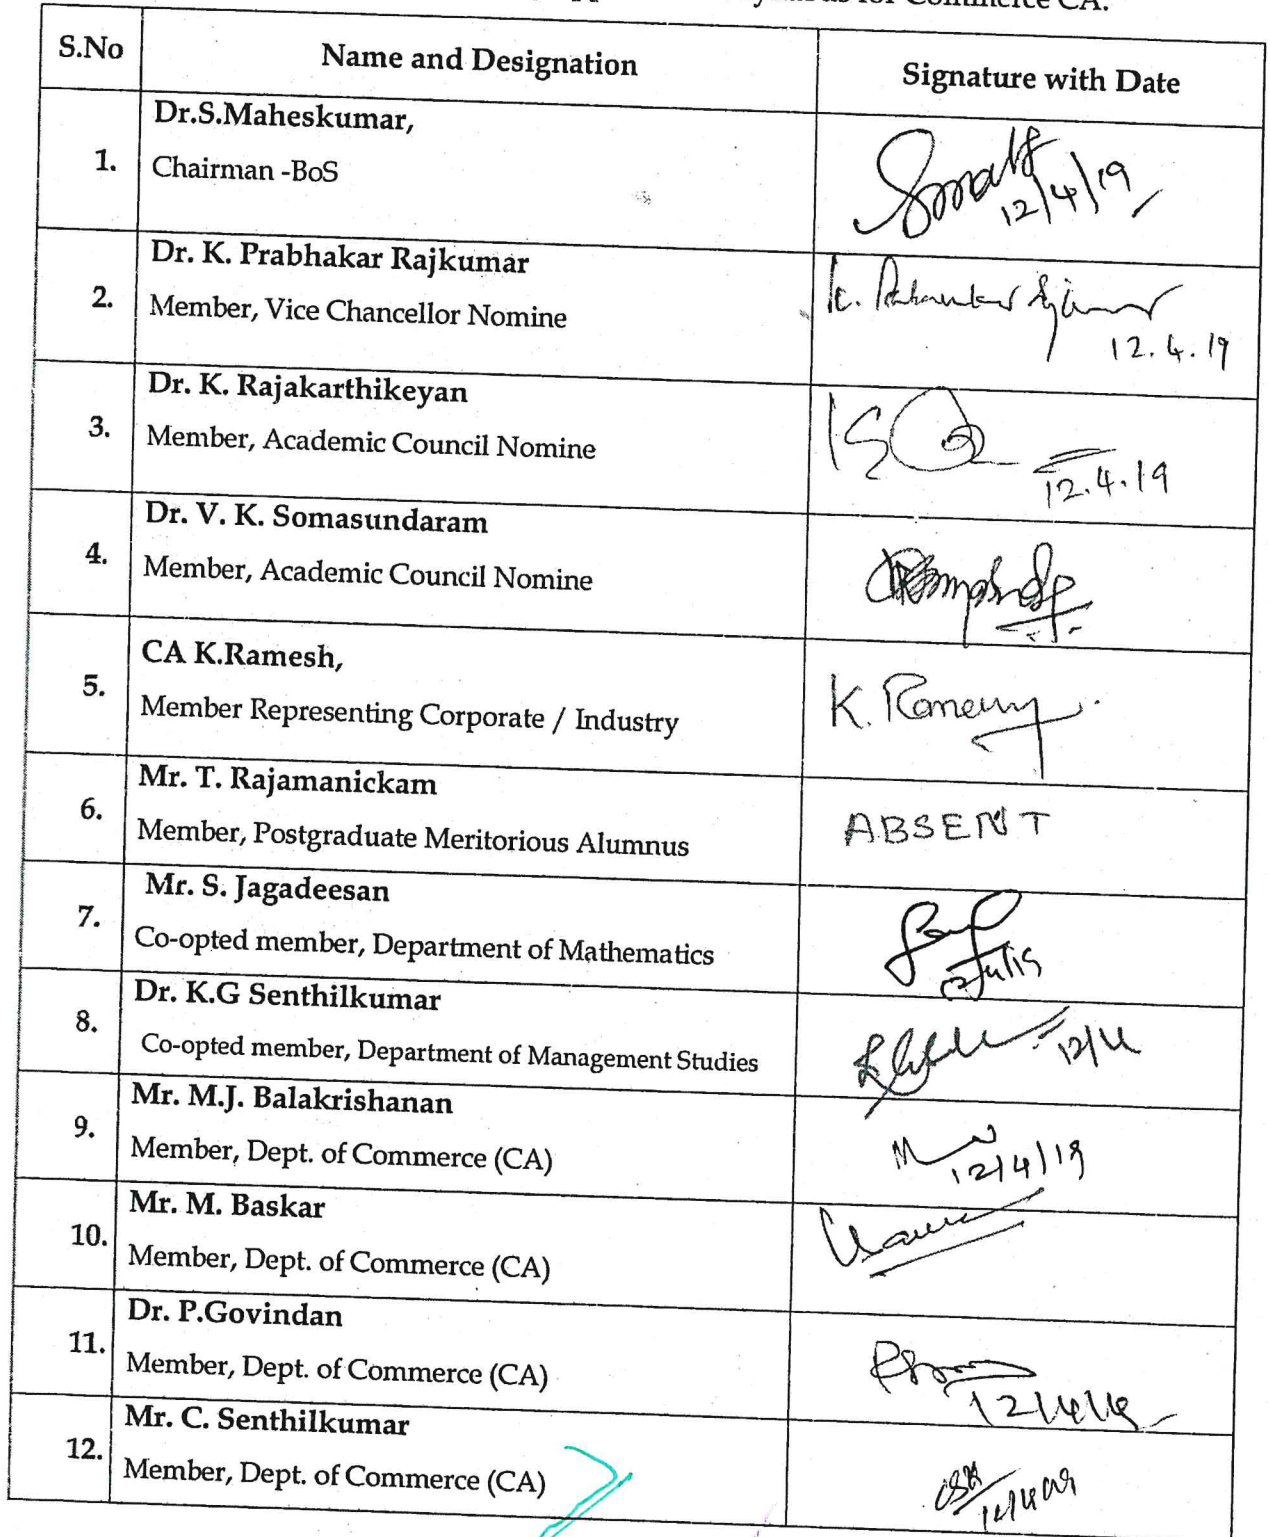 for Commerce CA.
S.No
Name and Designation
Signature with Date
1.
Dr.S.Maheskumar,
Chairman -BoS
12/4/19
2.
Dr. K. Prabhakar Rajkumar
Member, Vice Chancellor Nomine
12.4.19
3.
Dr. K. Rajakarthikeyan
Member, Academic Council Nomine
12.4.19
4.
Dr. V. K. Somasundaram
Member, Academic Council Nomine
5.
CA K.Ramesh,
Member Representing Corporate / Industry
K. Ramesh
6.
Mr. T. Rajamanickam
Member, Postgraduate Meritorious Alumnus
ABSENT
7.
Mr. S. Jagadeesan
Co-opted member, Department of Mathematics
12/4/19
8.
Dr. K.G Senthilkumar
Co-opted member, Department of Management Studies
12/4
9.
Mr. M.J. Balakrishanan
Member, Dept. of Commerce (CA)
12/4/19
10.
Mr. M. Baskar
Member, Dept. of Commerce (CA)
11.
Dr. P.Govindan
Member, Dept. of Commerce (CA)
12/4/19
12.
Mr. C. Senthilkumar
Member, Dept. of Commerce (CA)